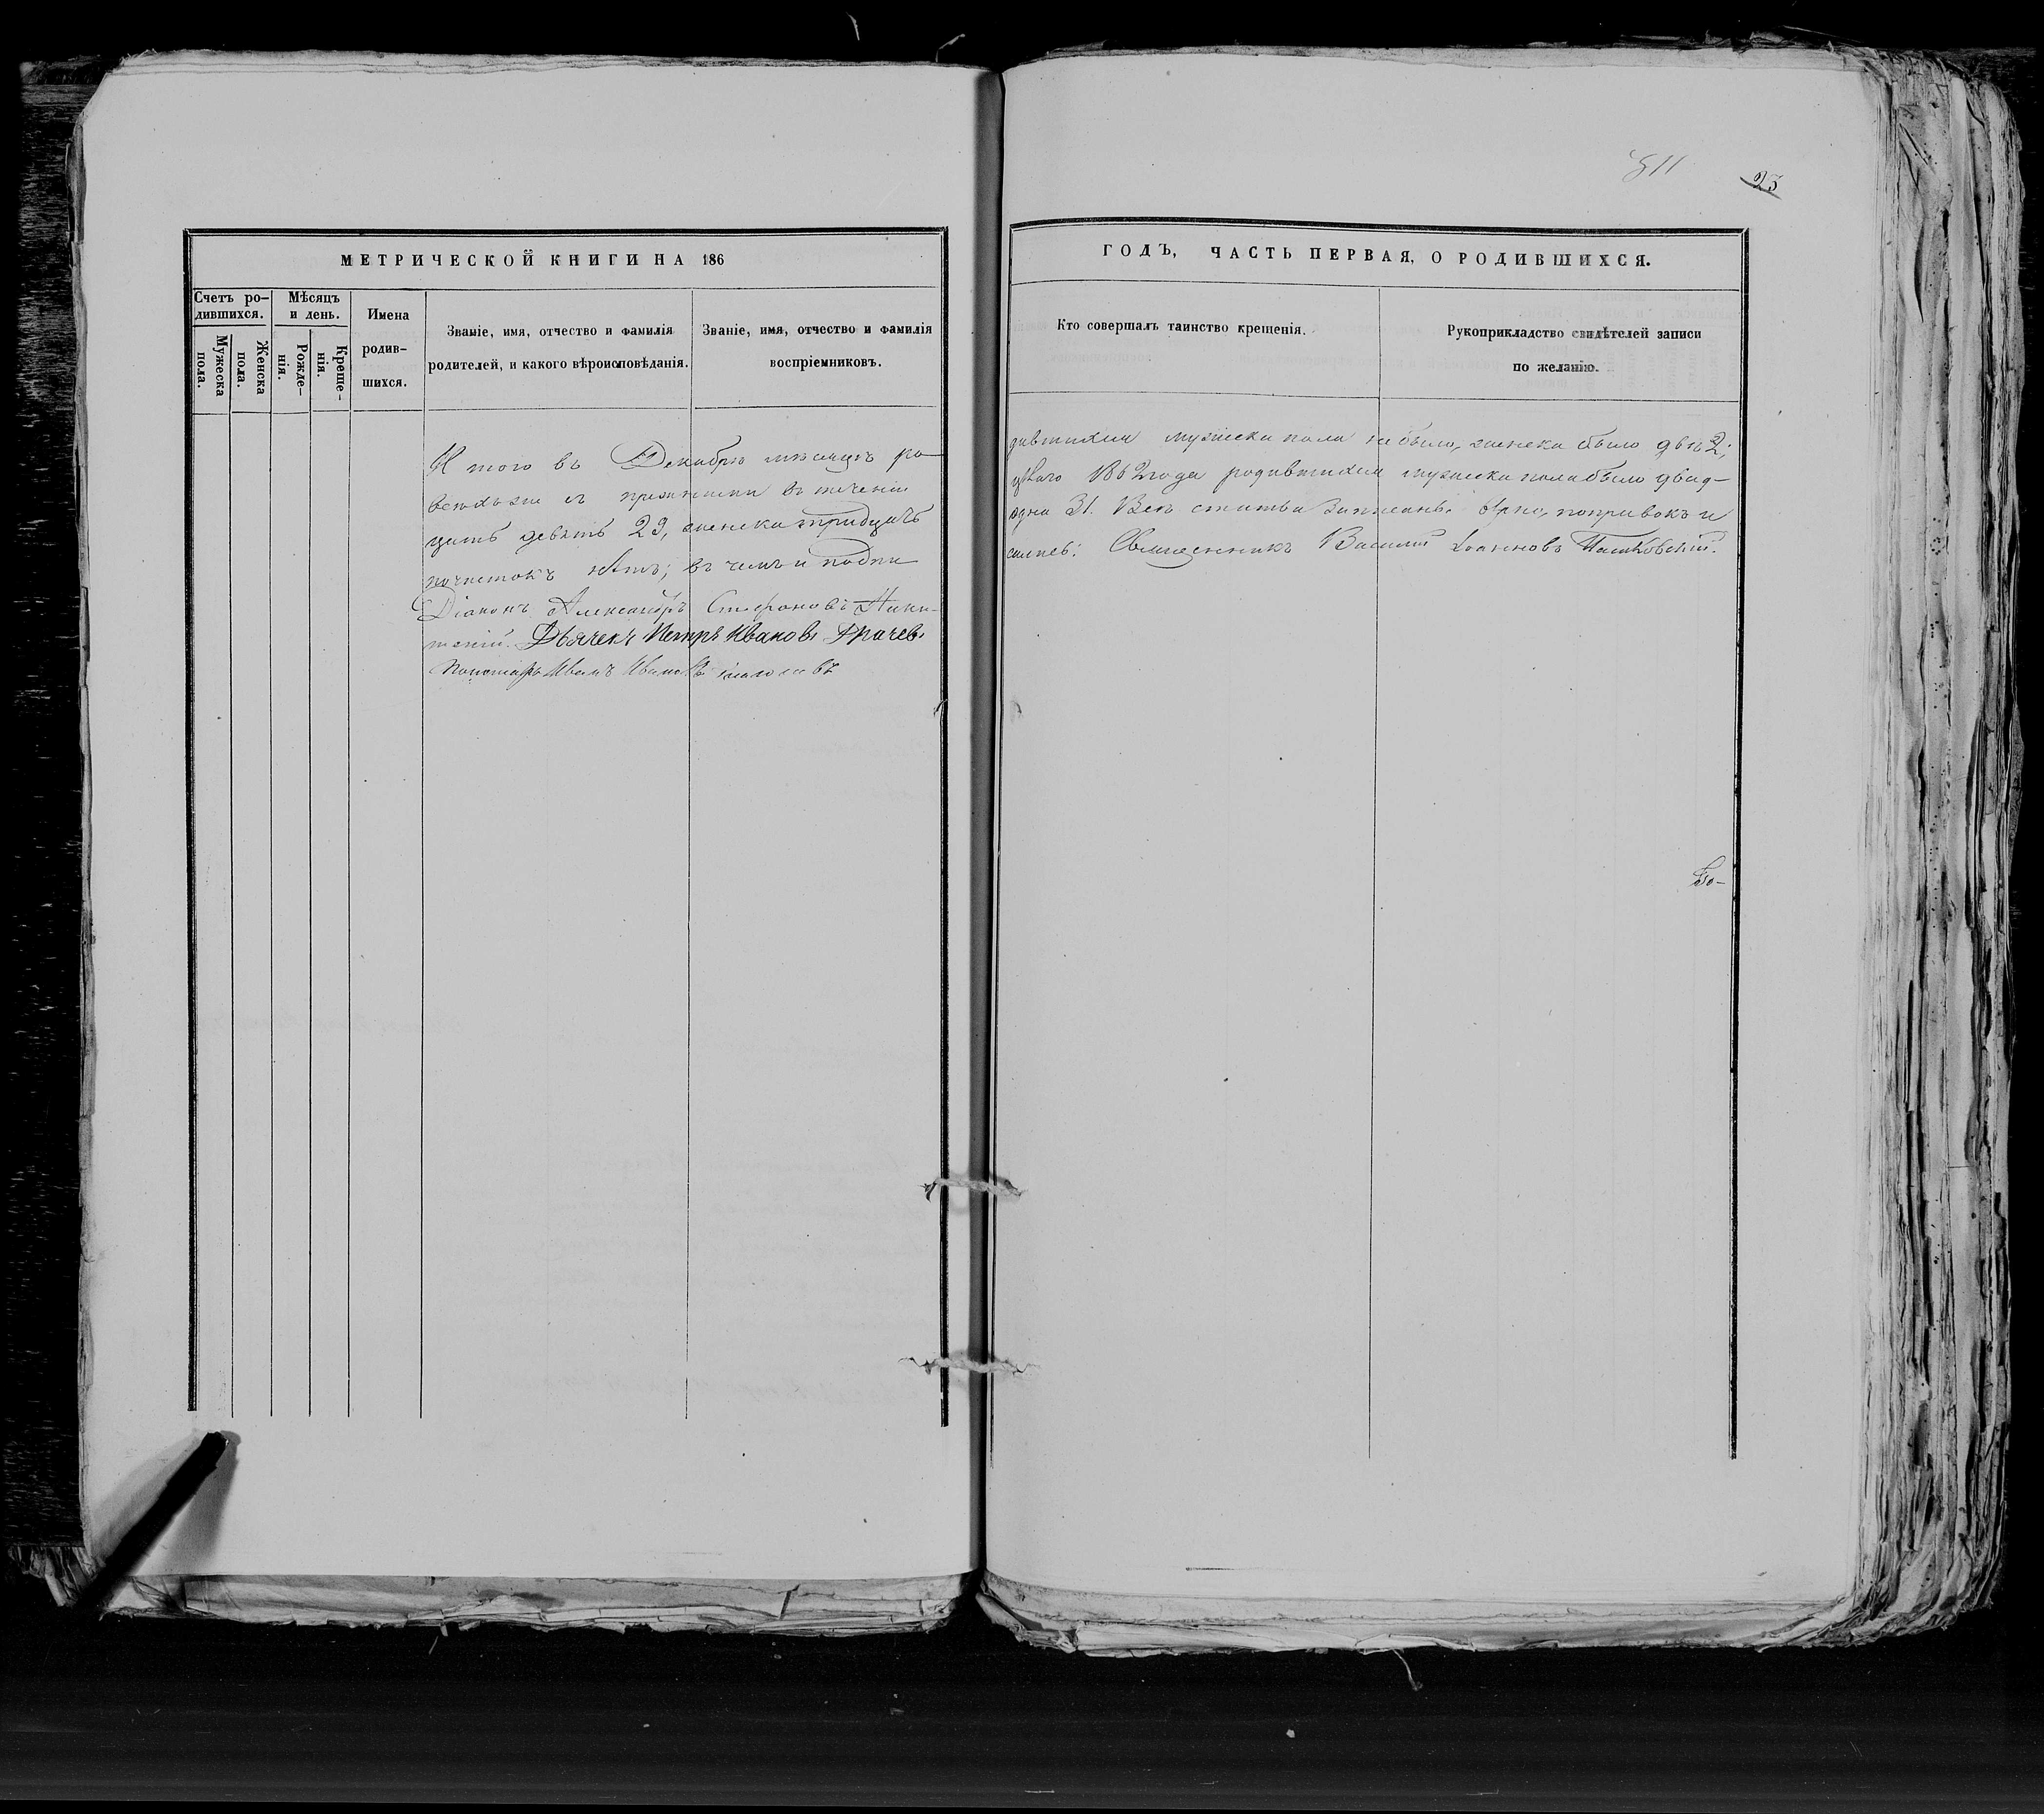 МЕТРИЧЕСКОЙ КНИГИ НА 186
Счетъ ро-
дившихся.
Мѣсяцъ
и день.
Имена
родив-
шихся.
Мужеска
пола.
Женска
пола.
Рожде-
нія.
Креще-
нія.
Званіе, имя, отчество и фамилія
родителей, и какого вѣроисповѣданія.
Званіе, имя, отчество и фамилія
воспріемниковъ.
И того въ Декабрѣ мѣсяцѣ ро-
всѣхъ же съ прежними въ теченіи
цать девять 29, женска тридцать
почистокъ нѣтъ; въ чемъ и подпи
Діаконъ Александръ Стефановъ
Дьячекъ Петръ Ивановъ Грачевъ
Пономарь Иванъ Ивановъ
811
23
ГОДЪ, ЧАСТЬ ПЕРВАЯ, О РОДИВШИХСЯ.
Кто совершалъ таинство крещенія.
Рукоприкладство свидѣтелей записи
по желанію.
дившихся мужеска пола не было, женска было двѣ 2;
цѣлаго 1862 года родившихся мужеска пола было двад-
одна 31. Всѣ статьи записаны вѣрно, поправокъ и
сались: Священникъ Василій Іоанновъ Пашковскій.